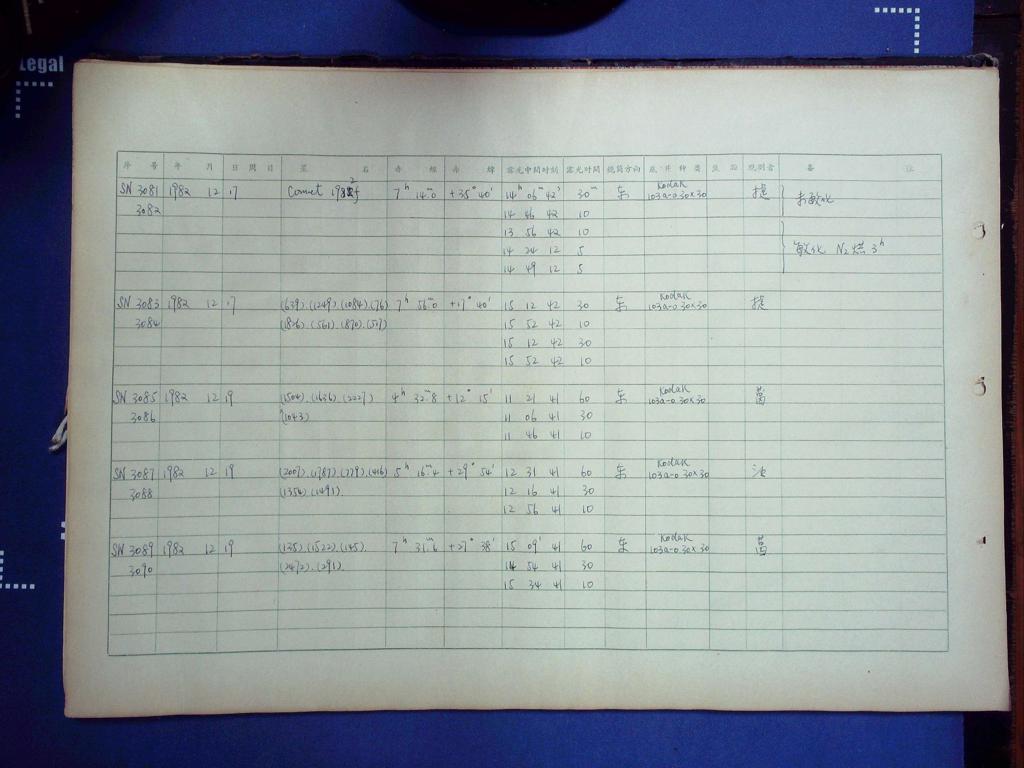 Legal
序 号 年 月 日 周 日 星 名 赤 经 赤 纬 露光中间时刻 露光时间 镜筒方向 底 片 种 类 观测者 备 注
SN 3081 1982 12 17 Comet 1982f 7ʰ 14ᵐ.0 +35° 40′ 14ʰ 06ᵐ 42ˢ 30ᵐ 东 Kodak 103a-0 30×30 捷 未敏化
3082 14 46 42 10
13 56 42 10
14 24 12 5 敏化 N₂ 烘 3ʰ
14 49 12 5
SN 3083 1982 12 17 (639).(1249).(1084).(76) 7 56ᵐ.0 +17° 40′ 15 12 42 30 东 Kodak 103a-0 30×30 捷
3084 (1826).(561).(870).(507) 15 52 42 10
15 12 42 30
15 52 42 10
SN 3085 1982 12 19 (1504).(1636).(2227) 4ʰ 32ᵐ.8 +12° 15′ 11 21 41 60 东 Kodak 103a-0 30×30
3086 (1043) 11 06 41 30
11 46 41 10
SN 3087 1982 12 19 (2007).(1787).(779).(416) 5ʰ 16ᵐ.4 +29° 54′ 12 31 41 60 东 Kodak 103a-0 30×30
3088 (1354).(1491). 12 16 41 30
12 56 41 10
SN 3089 1982 12 19 (135).(1522).(145). 7ʰ 31ᵐ.6 +27° 38′ 15 09′ 41 60 东 Kodak 103a-0 30×30
3090 (2472).(291). 14 54 41 30
15 34 41 10